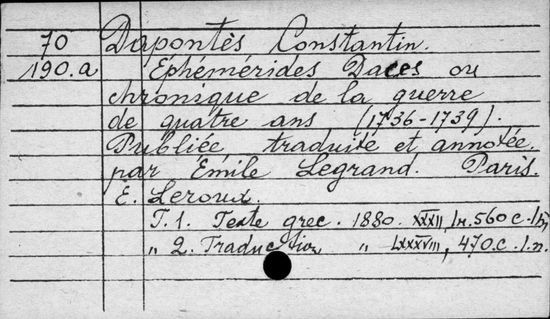 70 Dapontès Constantin.
190.a Ephémérides Daces ou
chronique de la guerre
de quatre ans (1736-1739).
Publiée traduite et annotée.
par Emile Legrand. Paris.
E. Leroux.
T. 1. Texte grec. 1880. XXXII, 560 c.
„ 2. Traduction „ LXXXVIII, 470. c. l.n.